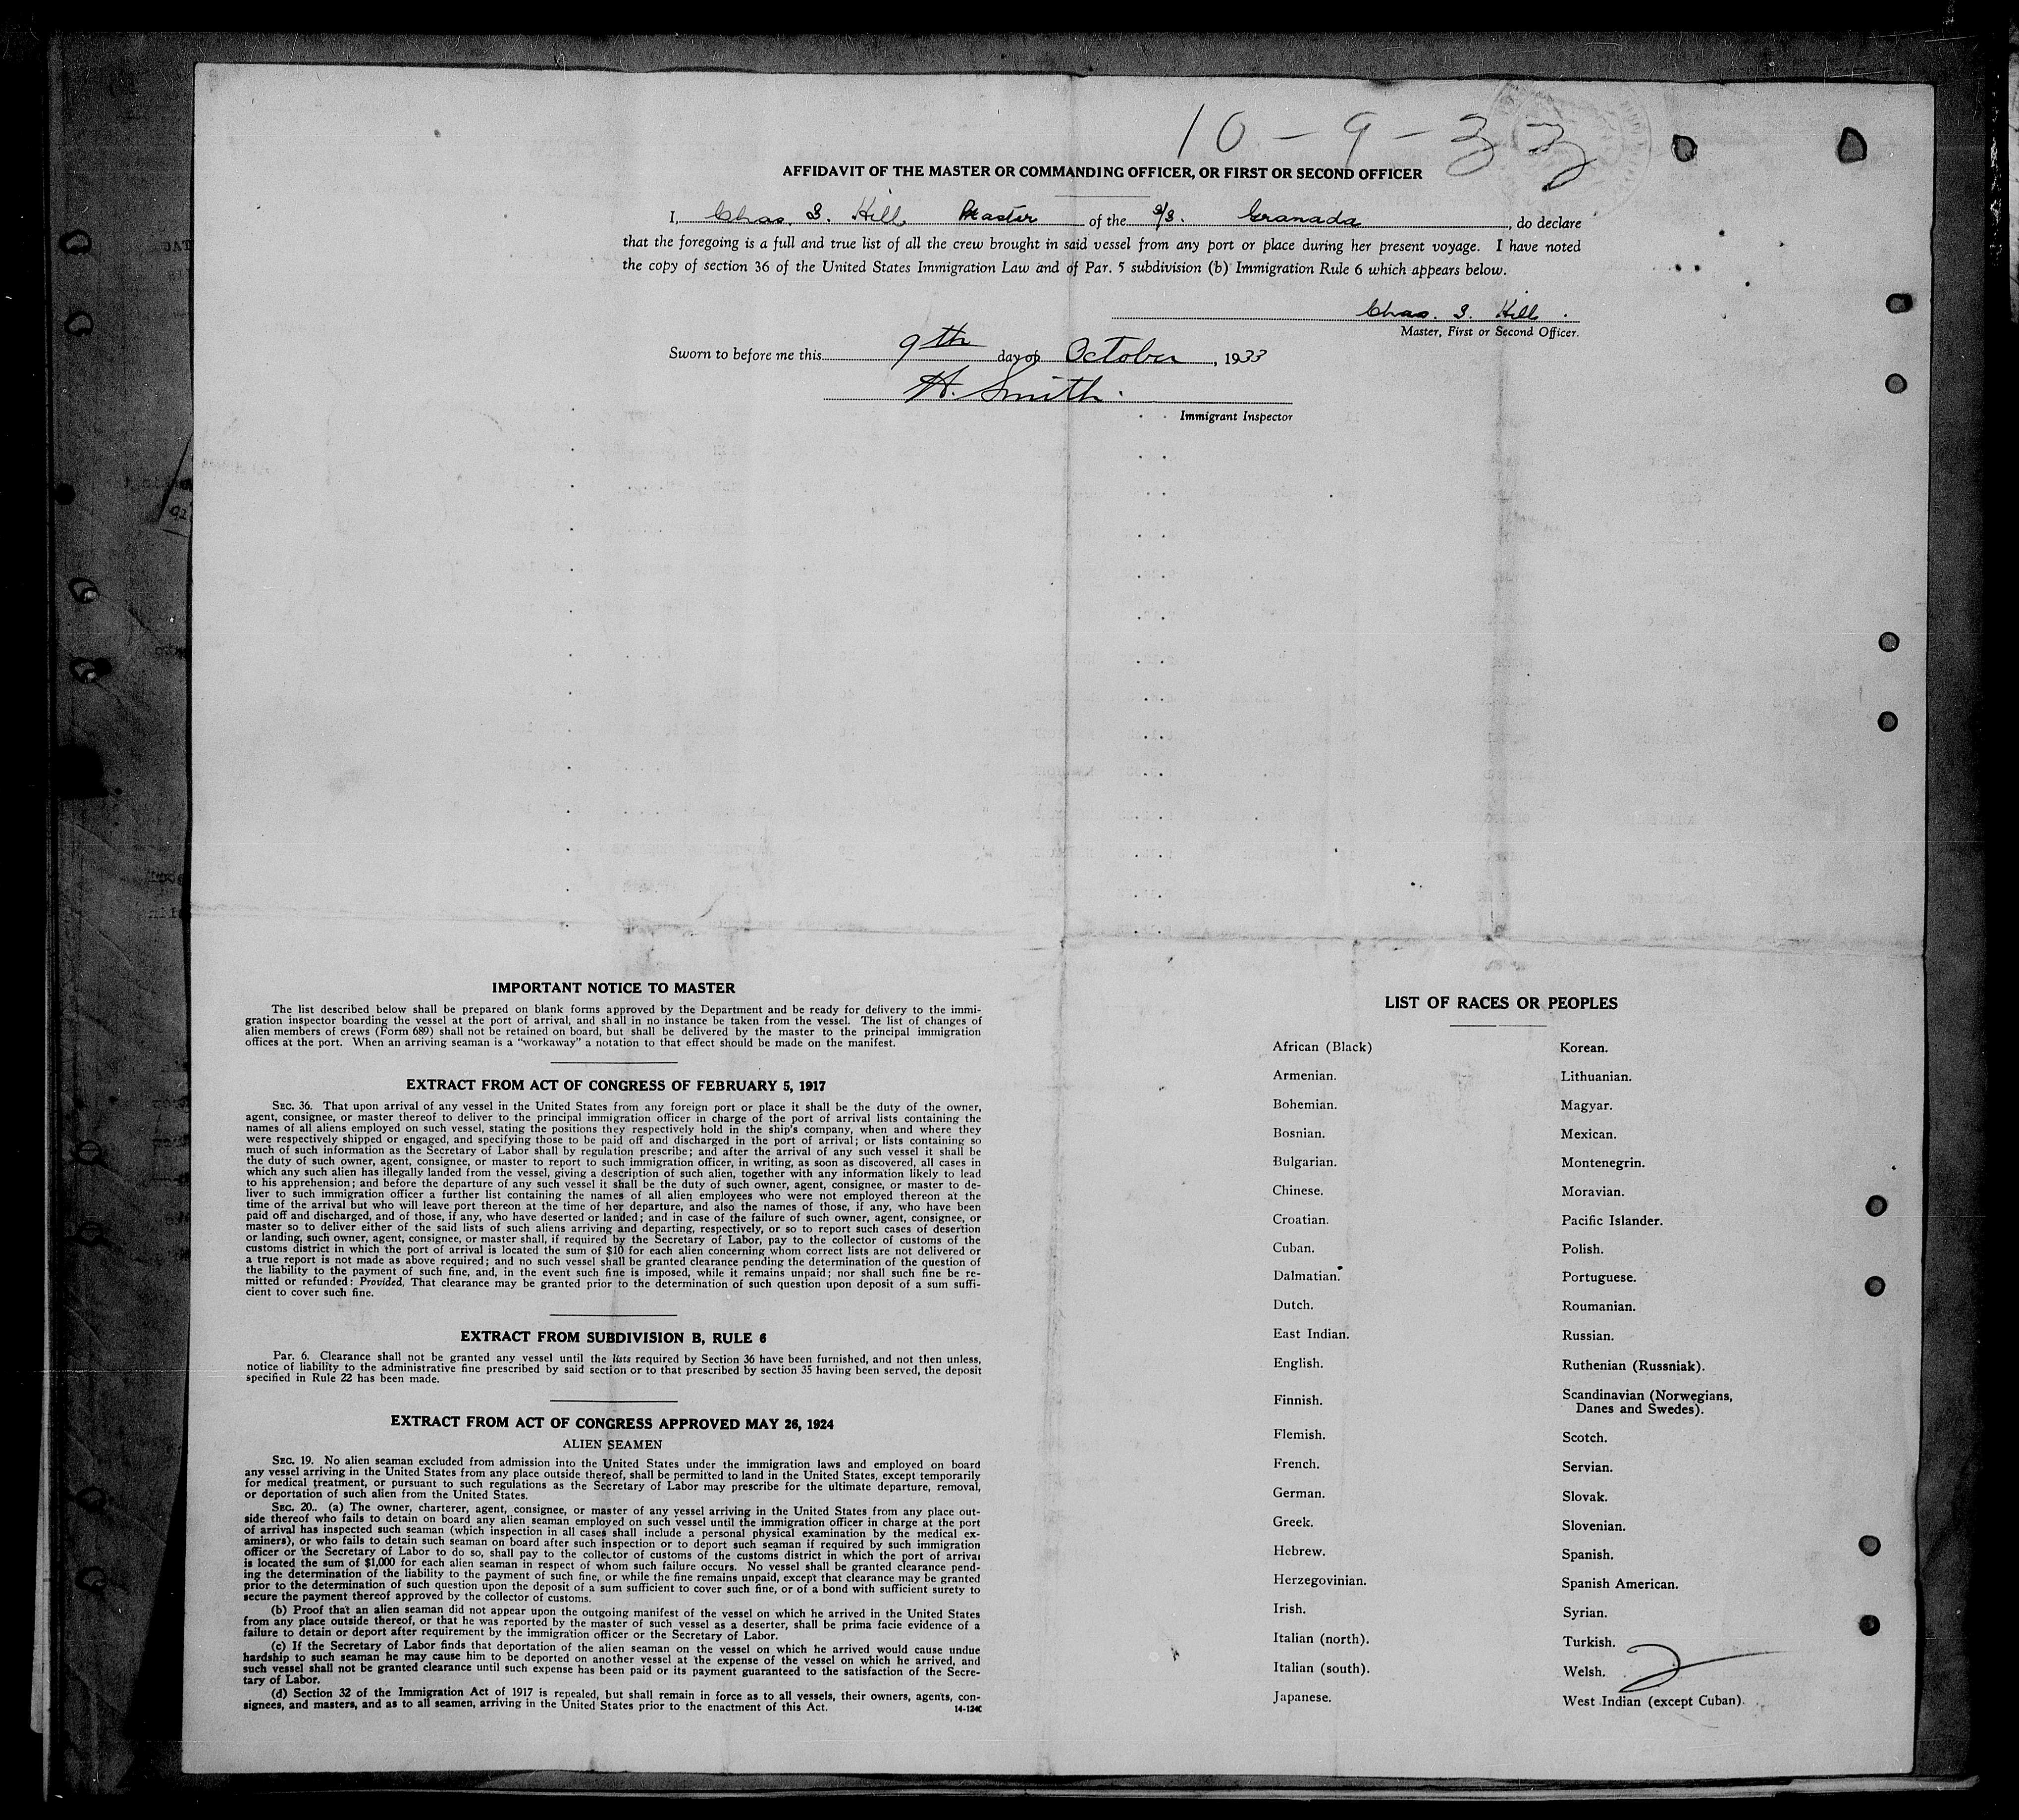 10-9-33
AFFIDAVIT OF THE MASTER OR COMMANDING OFFICER, OR FIRST OR SECOND OFFICER
I, Chas. S. Hill, Master of the s/s. Granada, do declare
that the foregoing is a full and true list of all the crew brought in said vessel from any port or place during her present voyage. I have noted
the copy of section 36 of the United States Immigration Law and of Par. 5 subdivision (b) Immigration Rule 6 which appears below.
Chas. S. Hill.
Master, First or Second Officer.
Sworn to before me this 9th day of October, 1933
H. Smith.
Immigrant Inspector
IMPORTANT NOTICE TO MASTER
The list described below shall be prepared on blank forms approved by the Department and be ready for delivery to the immi-
gration inspector boarding the vessel at the port of arrival, and shall in no instance be taken from the vessel. The list of changes of
alien members of crews (Form 689) shall not be retained on board, but shall be delivered by the master to the principal immigration
offices at the port. When an arriving seaman is a "workaway" a notation to that effect should be made on the manifest.
EXTRACT FROM ACT OF CONGRESS OF FEBRUARY 5, 1917
SEC. 36. That upon arrival of any vessel in the United States from any foreign port or place it shall be the duty of the owner,
agent, consignee, or master thereof to deliver to the principal immigration officer in charge of the port of arrival lists containing the
names of all aliens employed on such vessel, stating the positions they respectively hold in the ship's company, when and where they
were respectively shipped or engaged, and specifying those to be paid off and discharged in the port of arrival; or lists containing so
much of such information as the Secretary of Labor shall by regulation prescribe; and after the arrival of any such vessel it shall be
the duty of such owner, agent, consignee, or master to report to such immigration officer, in writing, as soon as discovered, all cases in
which any such alien has illegally landed from the vessel, giving a description of such alien, together with any information likely to lead
to his apprehension; and before the departure of any such vessel it shall be the duty of such owner, agent, consignee, or master to de-
liver to such immigration officer a further list containing the names of all alien employees who were not employed thereon at the
time of the arrival but who will leave port thereon at the time of her departure, and also the names of those, if any, who have been
paid off and discharged, and of those, if any, who have deserted or landed; and in case of the failure of such owner, agent, consignee, or
master so to deliver either of the said lists of such aliens arriving and departing, respectively, or so to report such cases of desertion
or landing, such owner, agent, consignee, or master shall, if required by the Secretary of Labor, pay to the collector of customs of the
customs district in which the port of arrival is located the sum of $10 for each alien concerning whom correct lists are not delivered or
a true report is not made as above required; and no such vessel shall be granted clearance pending the determination of the question of
the liability to the payment of such fine, and, in the event such fine is imposed, while it remains unpaid; nor shall such fine be re-
mitted or refunded: Provided, That clearance may be granted prior to the determination of such question upon deposit of a sum suffi-
cient to cover such fine.
EXTRACT FROM SUBDIVISION B, RULE 6
Par. 6. Clearance shall not be granted any vessel until the lists required by Section 36 have been furnished, and not then unless,
notice of liability to the administrative fine prescribed by said section or to that prescribed by section 35 having been served, the deposit
specified in Rule 22 has been made.
EXTRACT FROM ACT OF CONGRESS APPROVED MAY 26, 1924
ALIEN SEAMEN
SEC. 19. No alien seaman excluded from admission into the United States under the immigration laws and employed on board
any vessel arriving in the United States from any place outside thereof, shall be permitted to land in the United States, except temporarily
for medical treatment, or pursuant to such regulations as the Secretary of Labor may prescribe for the ultimate departure, removal,
or deportation of such alien from the United States.
SEC. 20.. (a) The owner, charterer, agent, consignee, or master of any vessel arriving in the United States from any place out-
side thereof who fails to detain on board any alien seaman employed on such vessel until the immigration officer in charge at the port
of arrival has inspected such seaman (which inspection in all cases shall include a personal physical examination by the medical ex-
aminers), or who fails to detain such seaman on board after such inspection or to deport such seaman if required by such immigration
officer or the Secretary of Labor to do so, shall pay to the collector of customs of the customs district in which the port of arrival
is located the sum of $1,000 for each alien seaman in respect of whom such failure occurs. No vessel shall be granted clearance pend-
ing the determination of the liability to the payment of such fine, or while the fine remains unpaid, except that clearance may be granted
prior to the determination of such question upon the deposit of a sum sufficient to cover such fine, or of a bond with sufficient surety to
secure the payment thereof approved by the collector of customs.
(b) Proof that an alien seaman did not appear upon the outgoing manifest of the vessel on which he arrived in the United States
from any place outside thereof, or that he was reported by the master of such vessel as a deserter, shall be prima facie evidence of a
failure to detain or deport after requirement by the immigration officer or the Secretary of Labor.
(c) If the Secretary of Labor finds that deportation of the alien seaman on the vessel on which he arrived would cause undue
hardship to such seaman he may cause him to be deported on another vessel at the expense of the vessel on which he arrived, and
such vessel shall not be granted clearance until such expense has been paid or its payment guaranteed to the satisfaction of the Secre-
tary of Labor.
(d) Section 32 of the Immigration Act of 1917 is repealed, but shall remain in force as to all vessels, their owners, agents, con-
signees, and masters, and as to all seamen, arriving in the United States prior to the enactment of this Act.
14-124
LIST OF RACES OR PEOPLES
African (Black)
Armenian.
Bohemian.
Bosnian.
Bulgarian.
Chinese.
Croatian.
Cuban.
Dalmatian.
Dutch.
East Indian.
English.
Finnish.
Flemish.
French.
German.
Greek.
Hebrew.
Herzegovinian.
Irish.
Italian (north).
Italian (south).
Japanese.
Korean.
Lithuanian.
Magyar.
Mexican.
Montenegrin.
Moravian.
Pacific Islander.
Polish.
Portuguese.
Roumanian.
Russian.
Ruthenian (Russniak).
Scandinavian (Norwegians,
Danes and Swedes).
Scotch.
Servian.
Slovak.
Slovenian.
Spanish.
Spanish American.
Syrian.
Turkish.
Welsh.
West Indian (except Cuban).